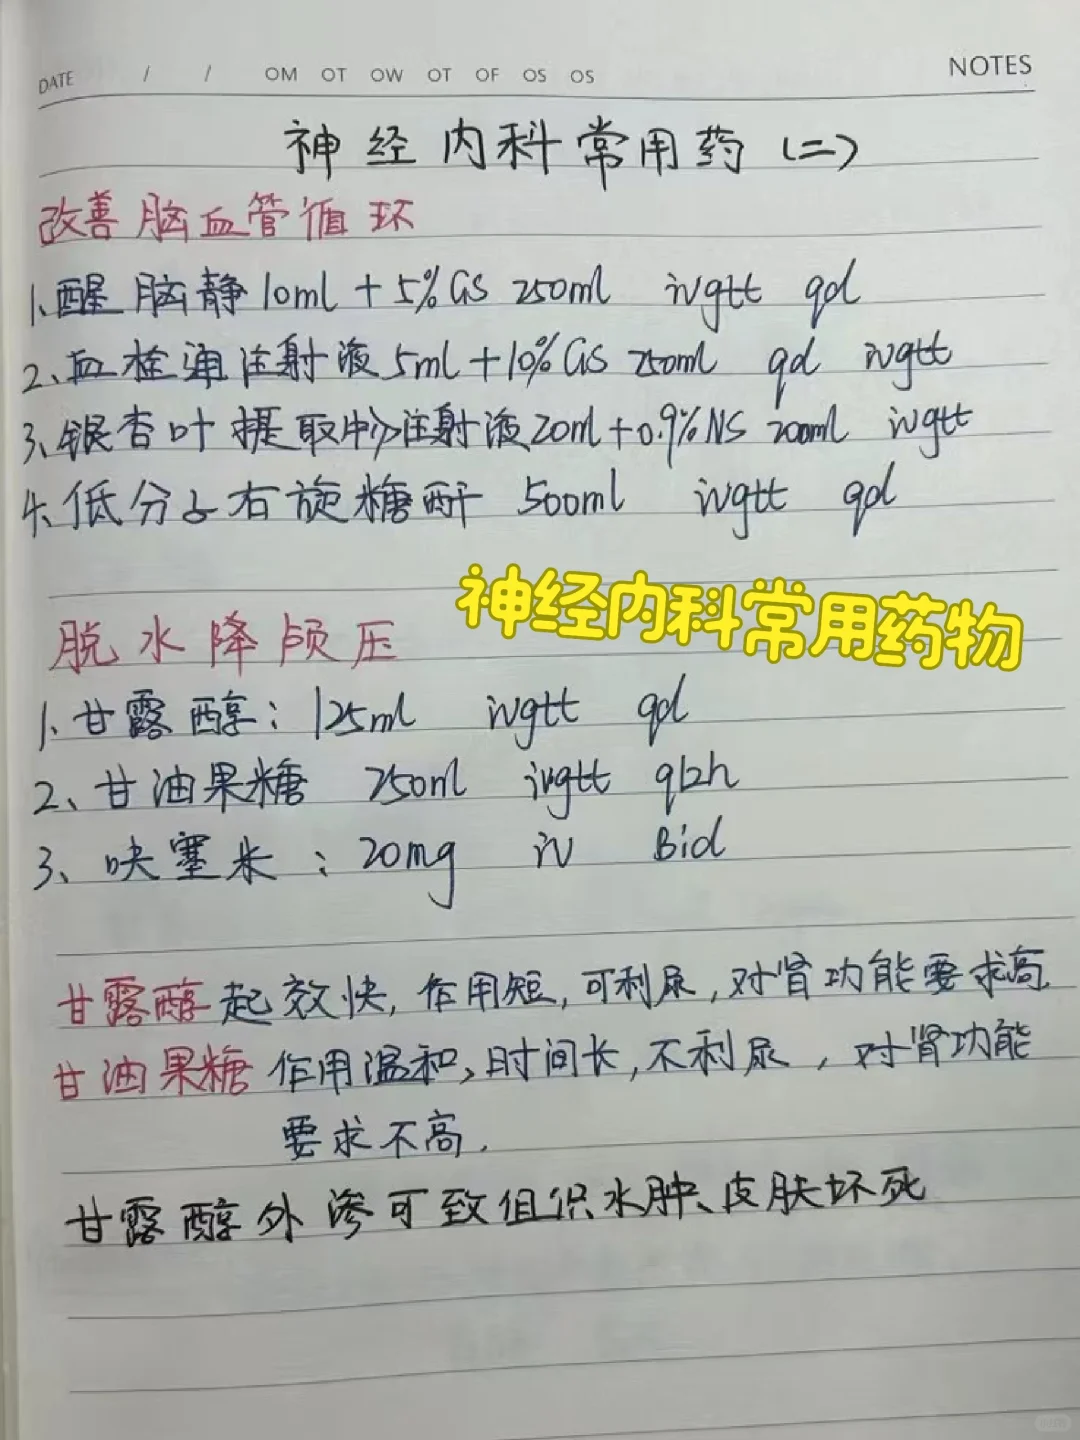 DATE / / OM OT OW OT OF OS OS NOTES
神经内科常用药（二）
改善脑血管循环
1、醒脑静10ml+5%GS 250ml ivgtt qd
2、血栓通注射液5ml+10%GS 250ml qd ivgtt
3、银杏叶提取物注射液20ml+0.9%NS 200ml ivgtt
4、低分子右旋糖酐 500ml ivgtt qd
神经内科常用药物
脱水降颅压
1、甘露醇：125ml ivgtt qd
2、甘油果糖 250ml ivgtt q12h
3、呋塞米：20mg iv Bid
甘露醇起效快，作用短，可利尿，对肾功能要求高
甘油果糖 作用温和，时间长，不利尿，对肾功能
要求不高.
甘露醇外渗可致组织水肿、皮肤坏死